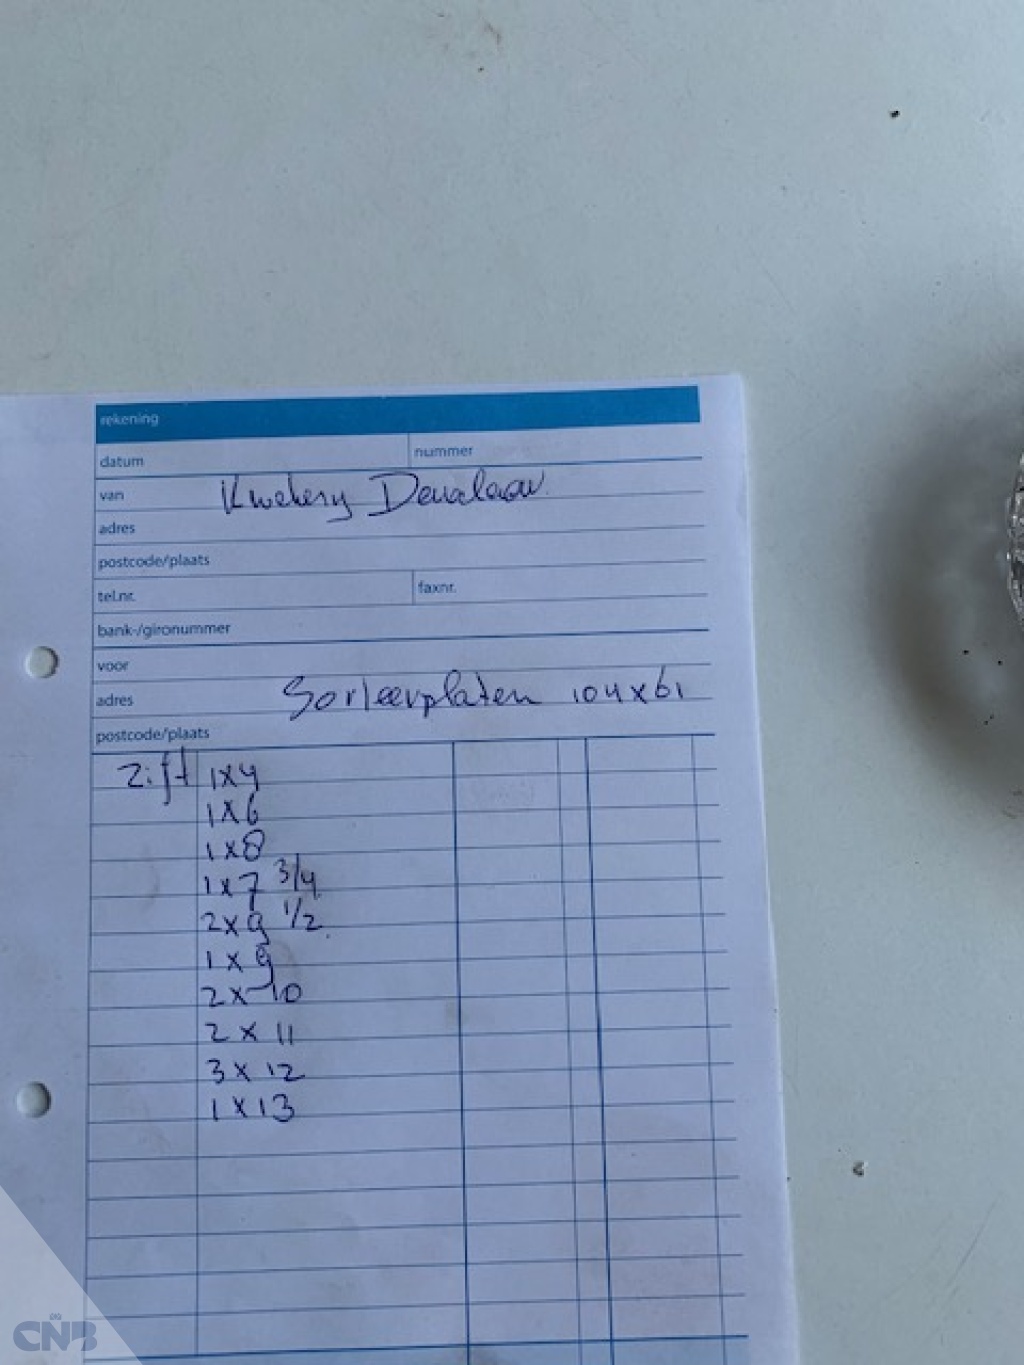 rekening
datum nummer
van Kwekery
adres
postcode/plaats
tel.nr. faxnr.
bank-/gironummer
voor
adres Sorteerplaten 104x61
postcode/plaats
Zift 1x4
1x6
1x8
1x7 3/4
2x9 1/2
1x9
2x10
2x11
3x12
1x13
CNB